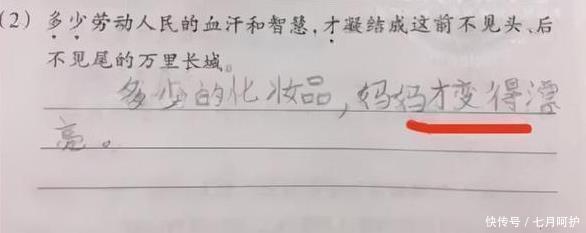 (2) 多少劳动人民的血汗和智慧,才凝结成这前不见头、后
不见尾的万里长城。
多少的化妆品，妈妈才变得漂
亮。
快传号/七月呵护